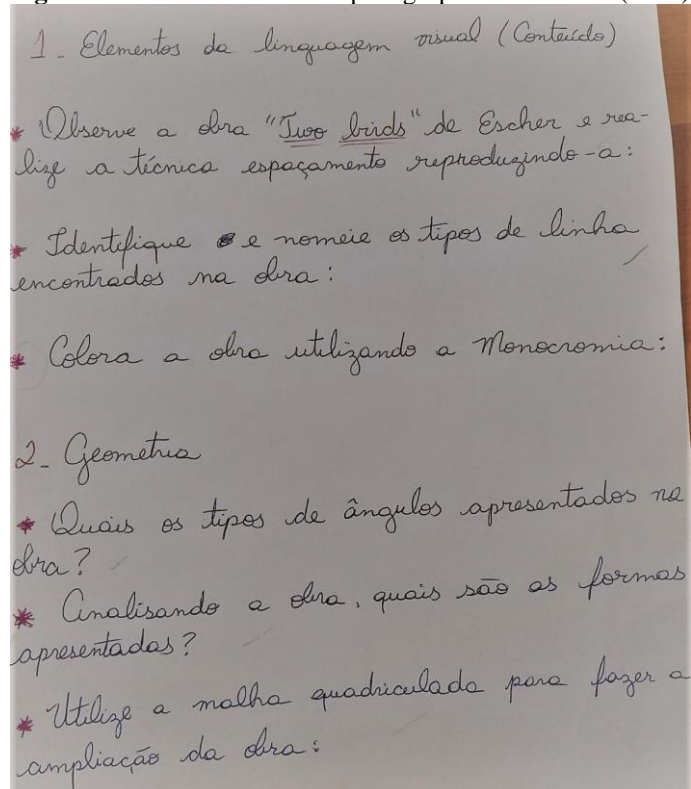 1. Elementos da linguagem visual (Conteúdo)
* Observe a obra "Two birds" de Escher e rea-
lize a técnica espaçamento reproduzindo-a:
* Identifique e nomeie os tipos de linha
encontrados na obra:
* Colora a obra utilizando a Monocromia:
2- Geometria
* Quais os tipos de ângulos apresentados na
obra?
* Analisando a obra, quais são as formas
apresentadas?
* Utilize a malha quadriculada para fazer a
ampliação da obra: